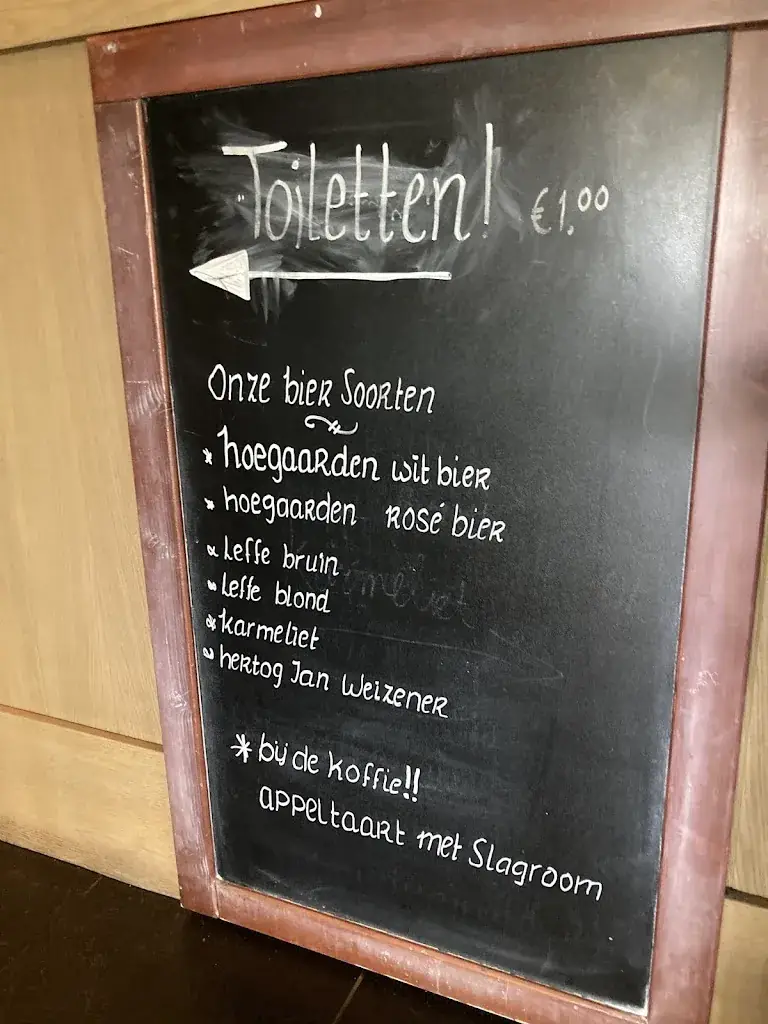 Toiletten! €1.00
Onze bier Soorten
* hoegaarden wit bier
* hoegaarden rosé bier
* Leffe bruin
* Leffe blond
* karmeliet
* hertog Jan Weizener
* bij de koffie!!
appeltaart met Slagroom